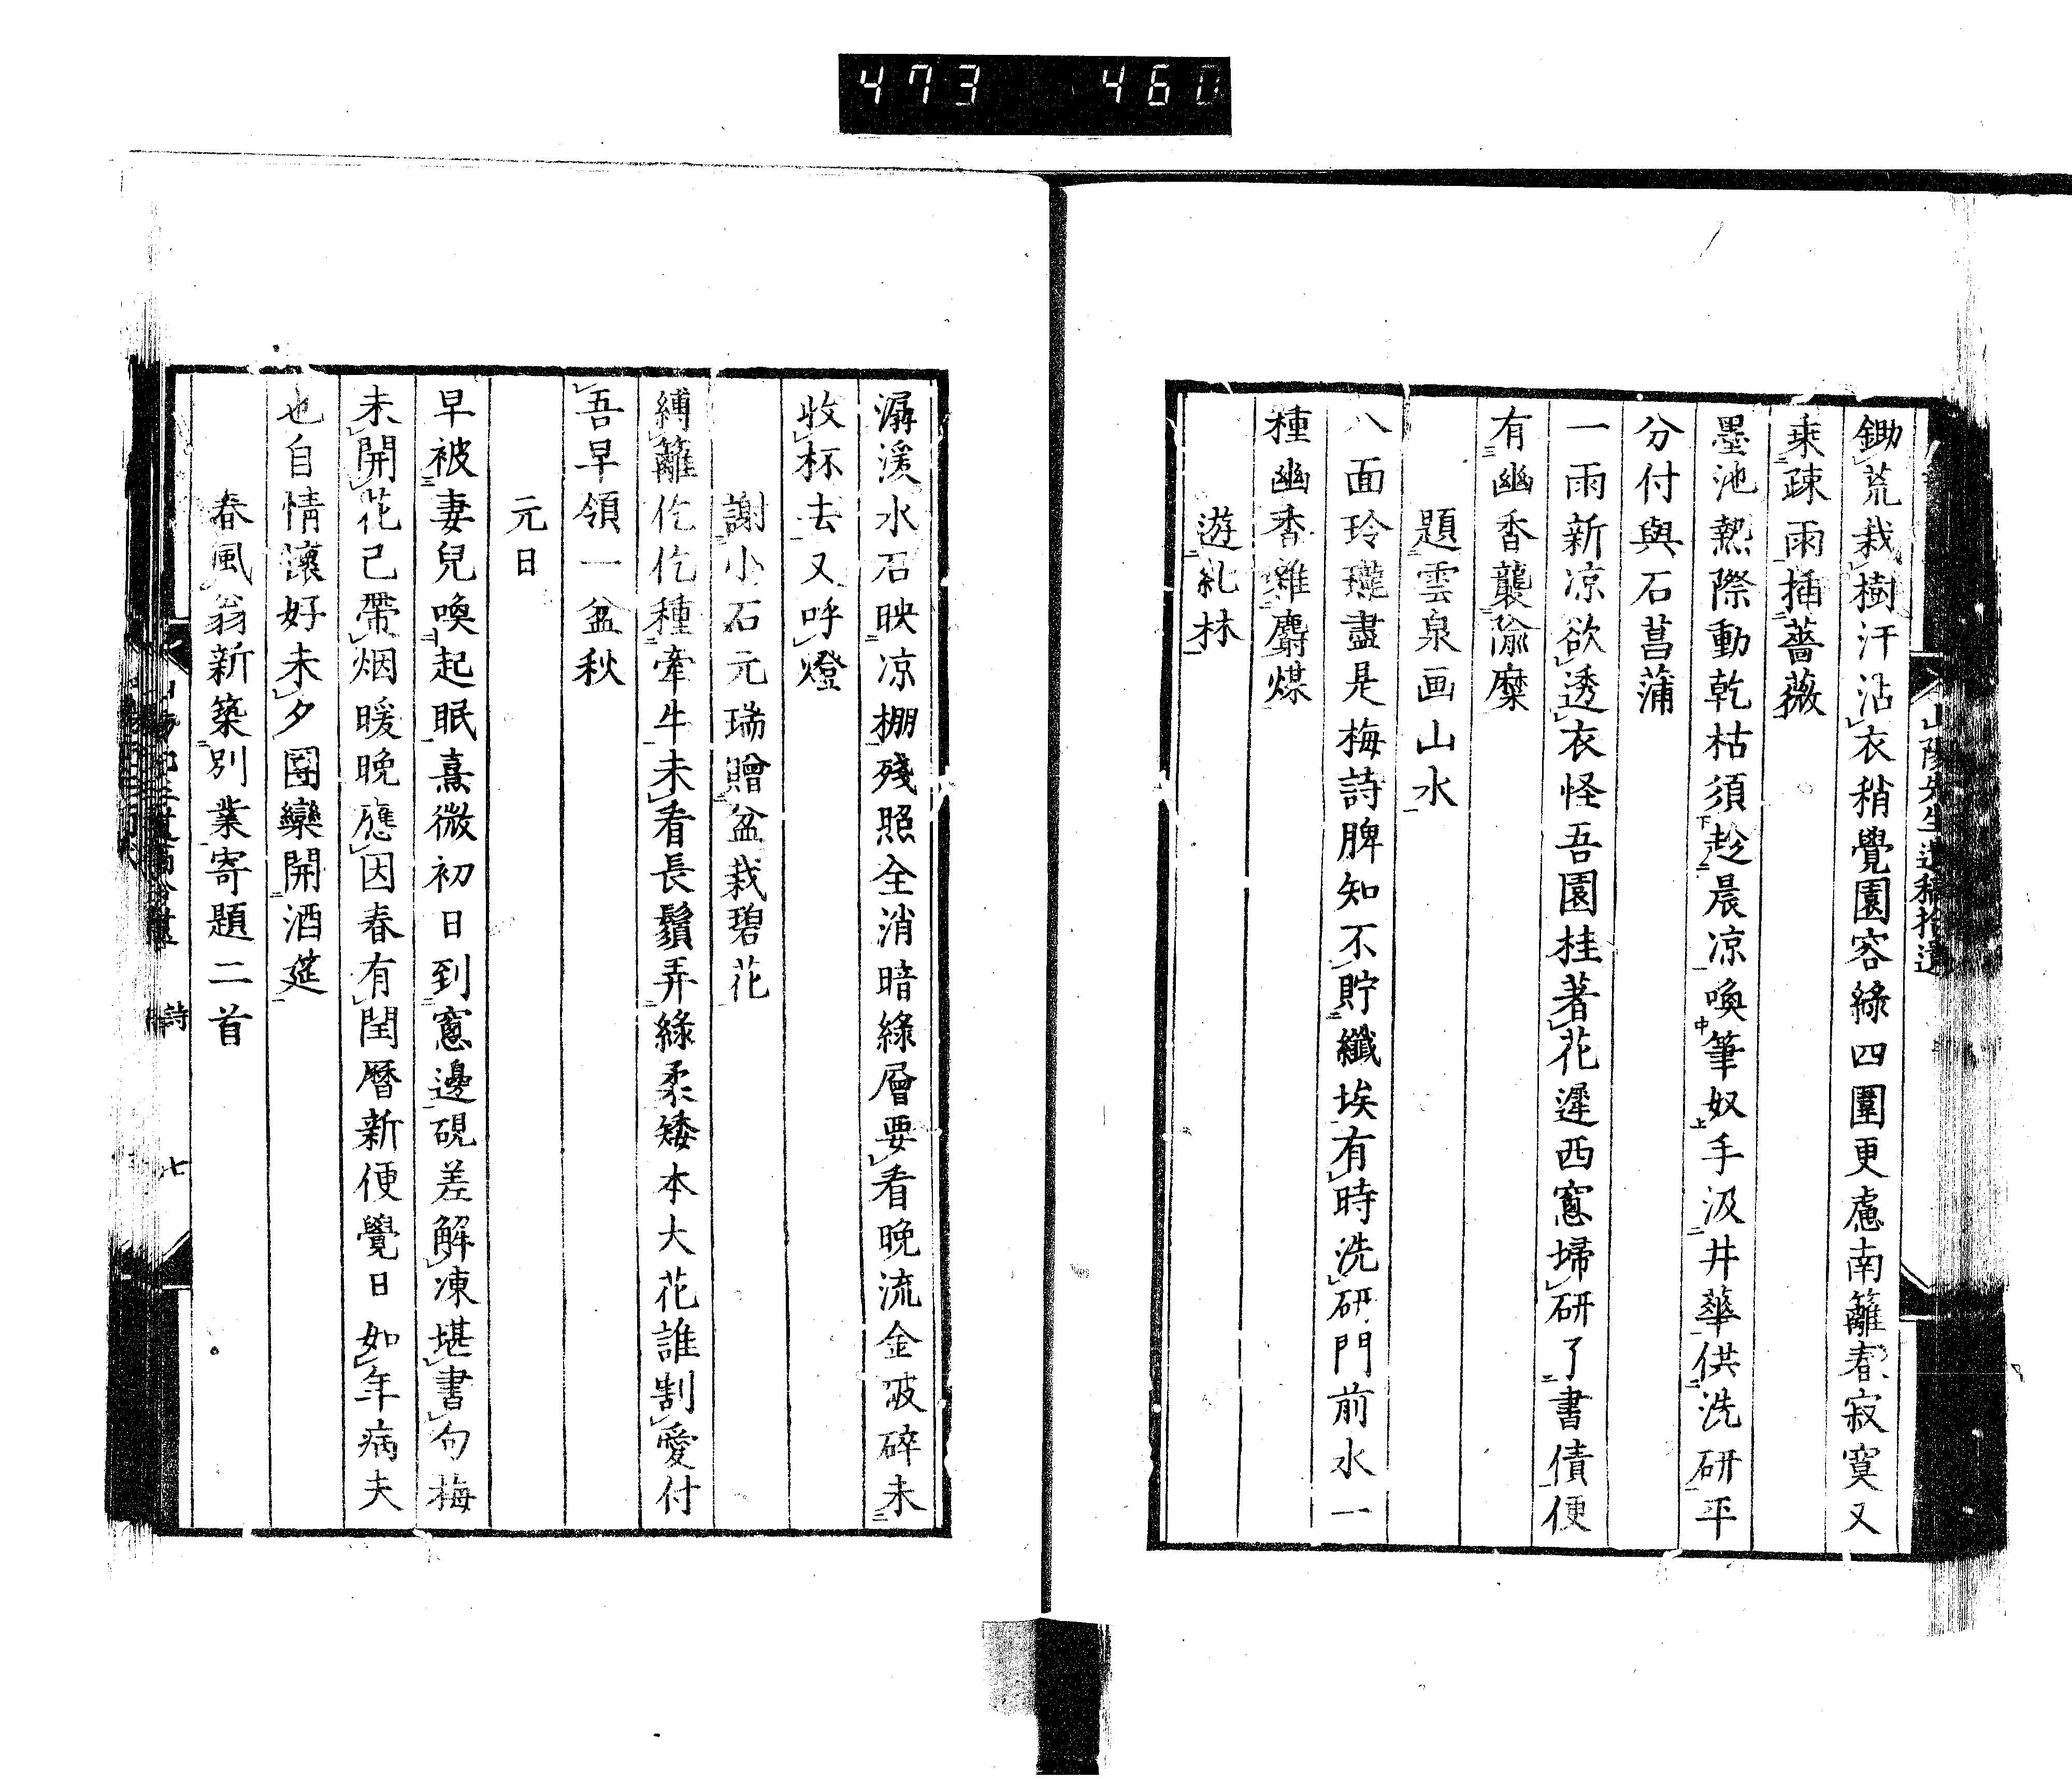 473 460
鋤荒栽樹汗沾衣稍覺園容綠四圍更慮南籬春寂寞又
乘疎雨插薔薇
墨池熱際動乾枯須趁晨凉喚筆奴手汲井華供洗研平
分付與石菖蒲
一雨新凉欲透衣怪吾園桂著花遲西窓埽研了書債便
有幽香襲隃糜
題雲泉画山水
八面玲瓏盡是梅詩脾知不貯纖埃有時洗研門前水一
種幽香雜麝煤
遊糺林
潺湲水石映凉棚殘照全消暗綠層要看晚流金波碎未
收杯去又呼燈
謝小石元瑞贈盆栽碧花
縛籬仡仡種牽牛未看長鬚弄綠柔矮本大花誰割愛付
吾早領一盆秋
元日
早被妻兒喚起眠熹微初日到窓邊硯差解凍堪書句梅
未開花已帶烟暖晚應因春有閏曆新便覺日如年病夫
也自情懷好未夕團欒開酒筵
春風翁新築別業寄題二首
詩
七